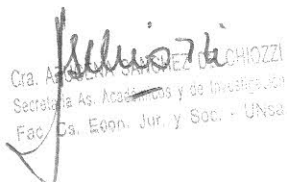 Cra. SANCHEZ CHIOZZI
Secretaria As. Académicos y de Investigación
Fac. Cs. Econ. Jur. y Soc. - UNSa